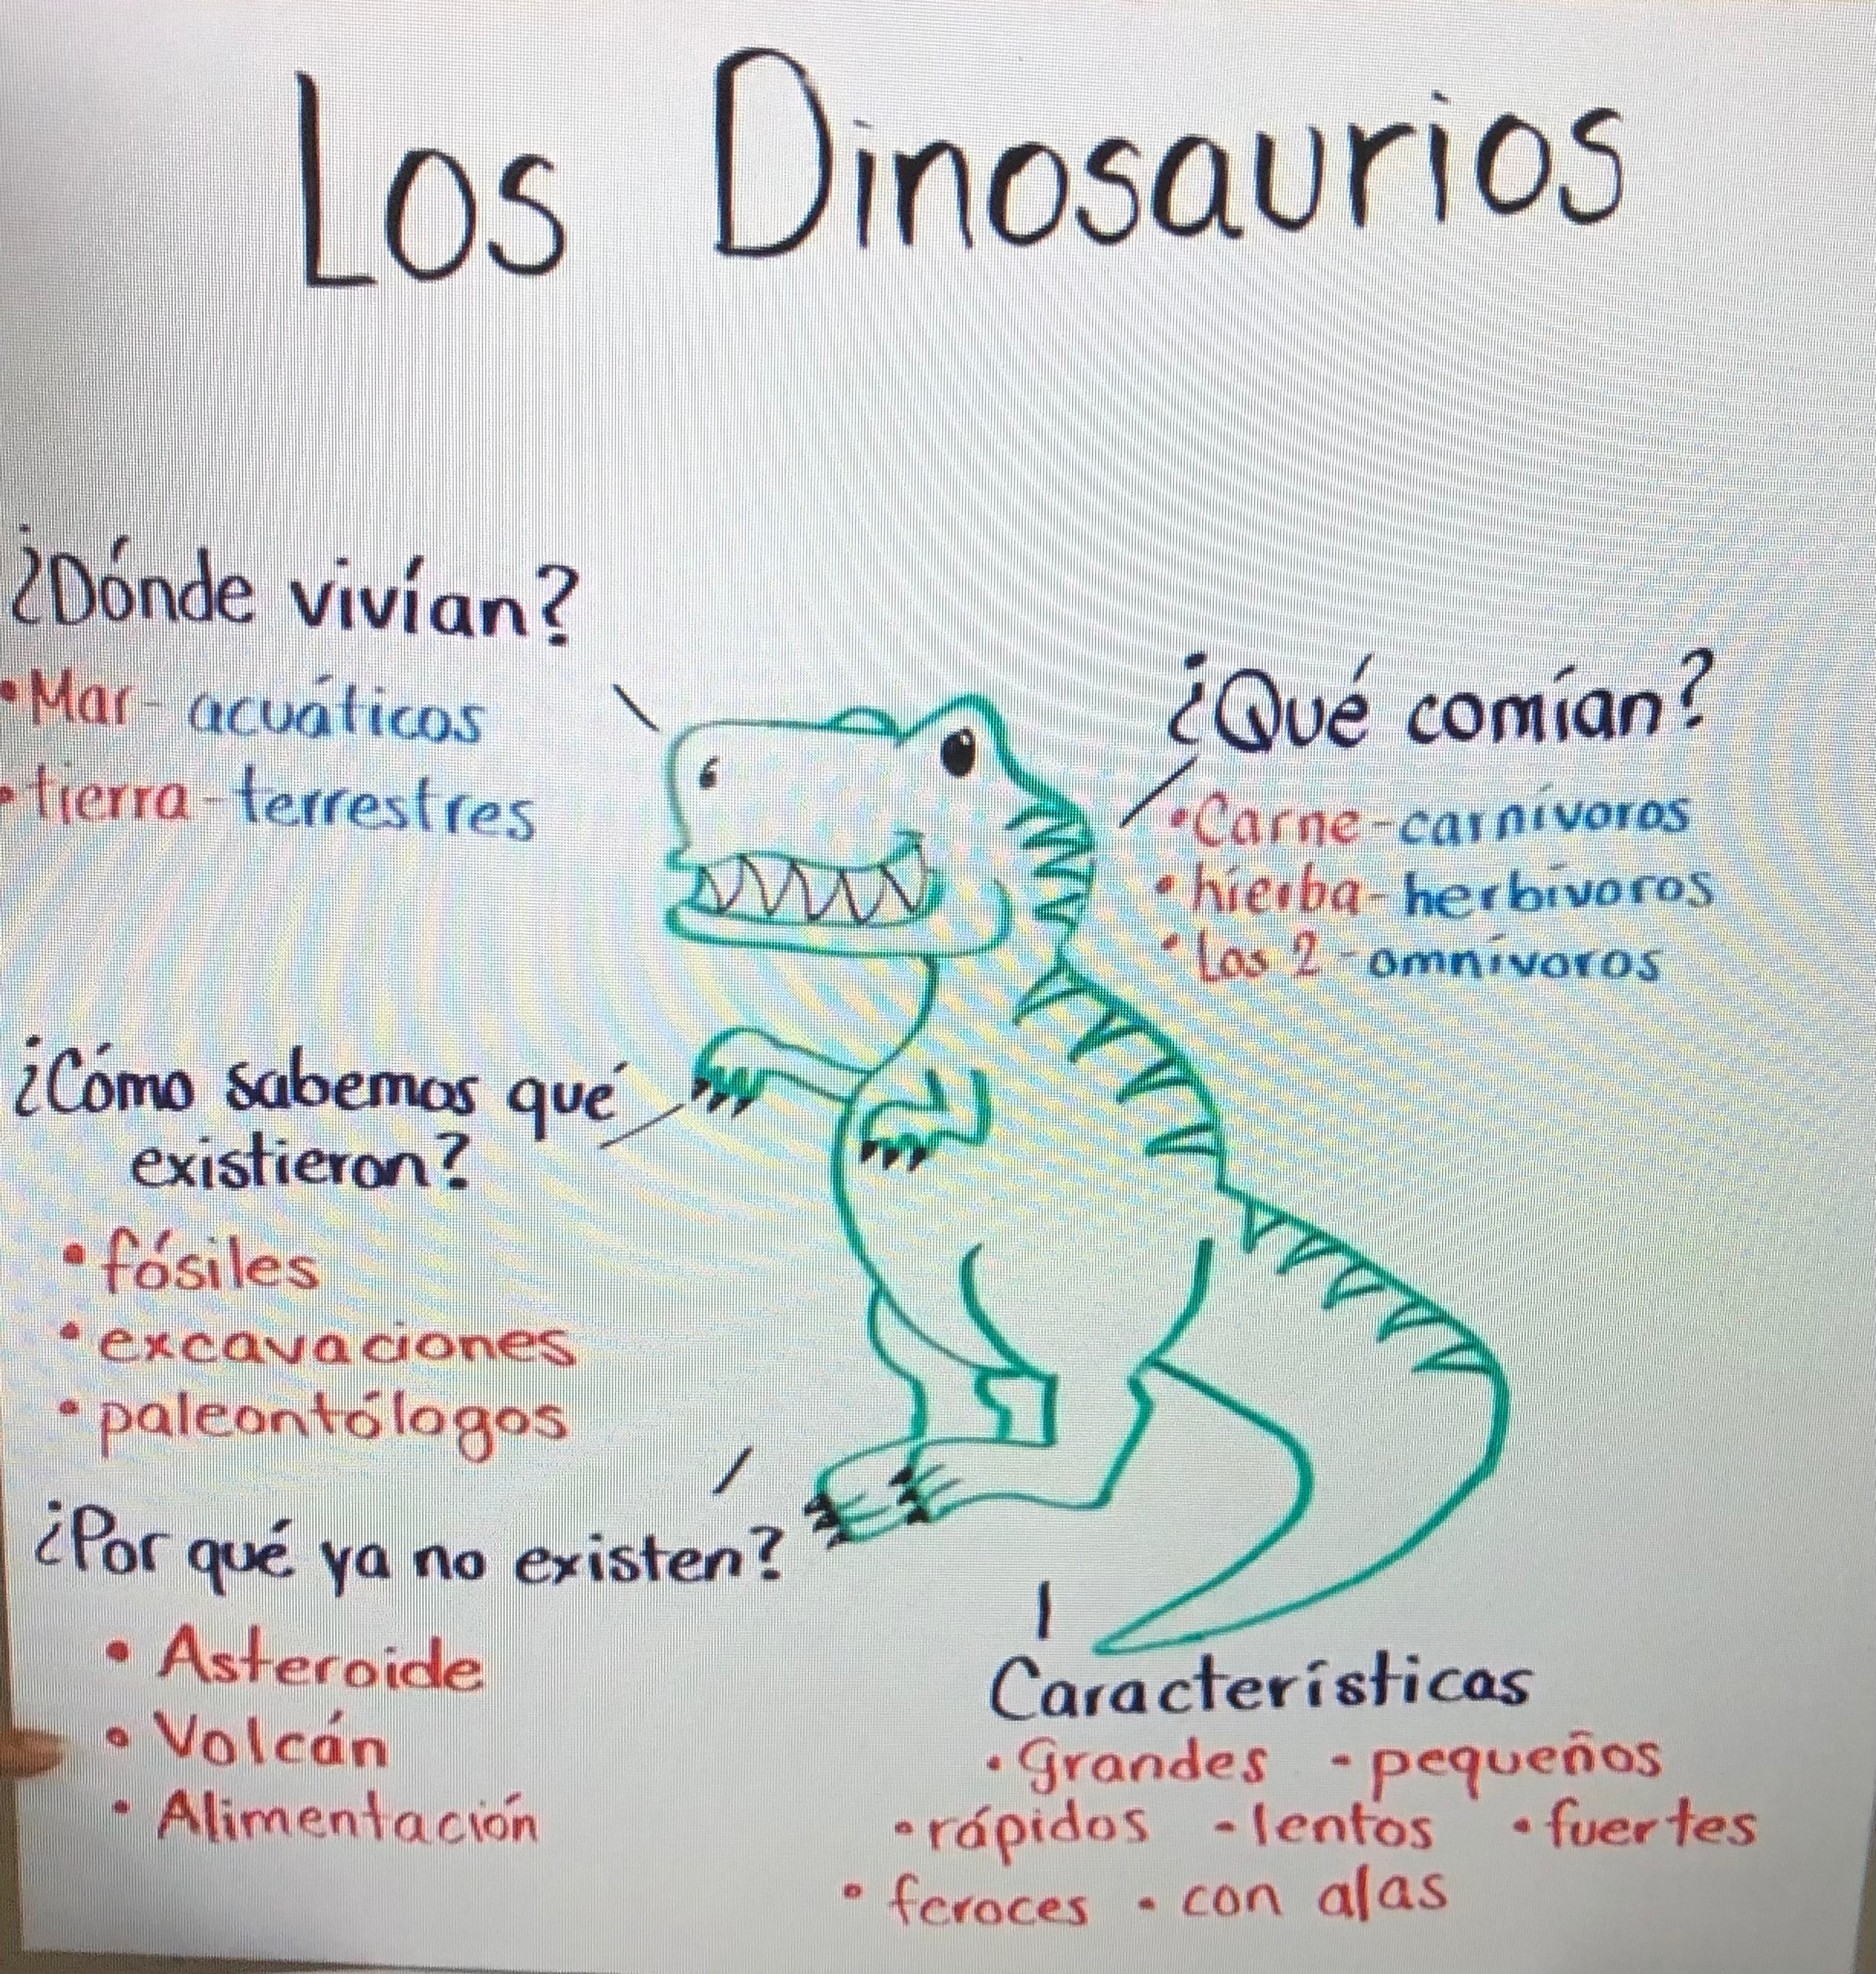 Los Dinosaurios
¿Dónde vivían?
•Mar- acuáticos
•tierra-terrestres
¿Qué comían?
•Carne-carnívoros
•hierba-herbívoros
•Los 2-omnívoros
¿Cómo sabemos qué
existieron?
•fósiles
•excavaciones
•paleontólogos
¿Por qué ya no existen?
• Asteroide
• Volcán
• Alimentación
Características
•Grandes -pequeños
•rápidos -lentos •fuertes
• feroces • con alas